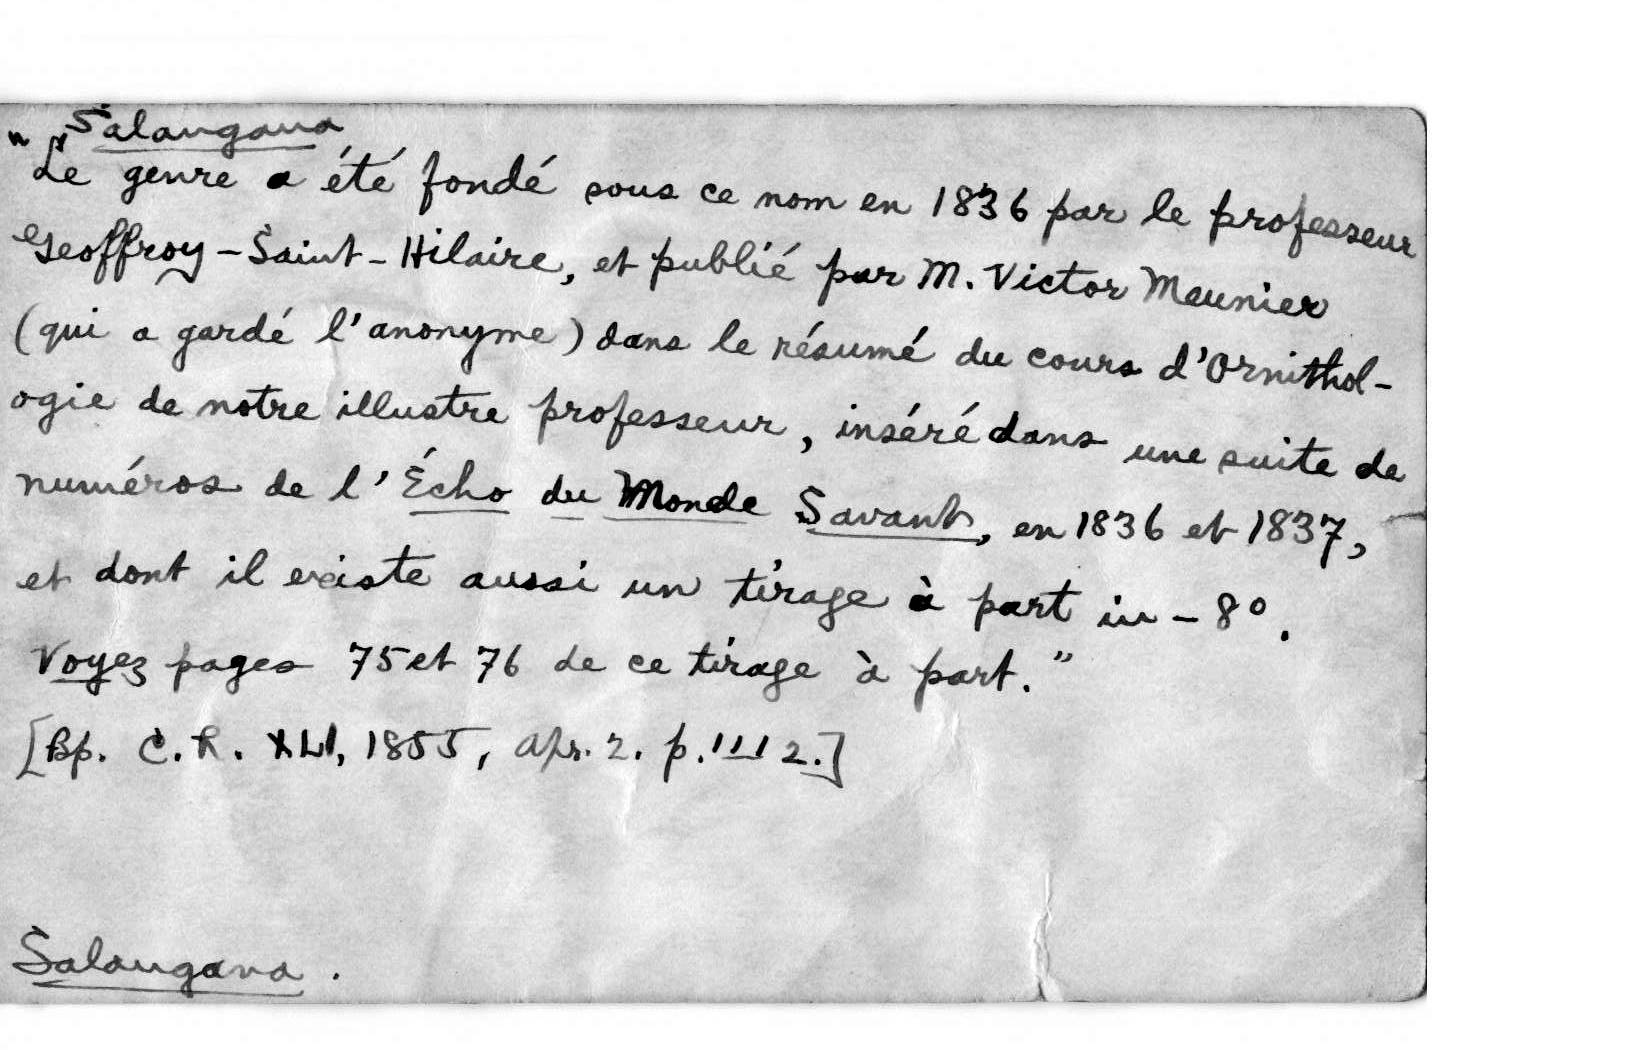 Salangana
"Le genre a été fondé sous ce nom en 1836 par le professeur
Geoffroy-Saint-Hilaire, et publié par M. Victor Meunier
(qui a gardé l'anonyme) dans le résumé du cours d'Ornithol-
ogie de notre illustre professeur, inséré dans une suite de
numéros de l'Écho du Monde Savant, en 1836 et 1837,
et dont il existe aussi un tirage à part in-8º.
Voyez pages 75 et 76 de ce tirage à part."
[Bp. C.R. XLI, 1855, apr. 2. p. 1112.]
Salangana.